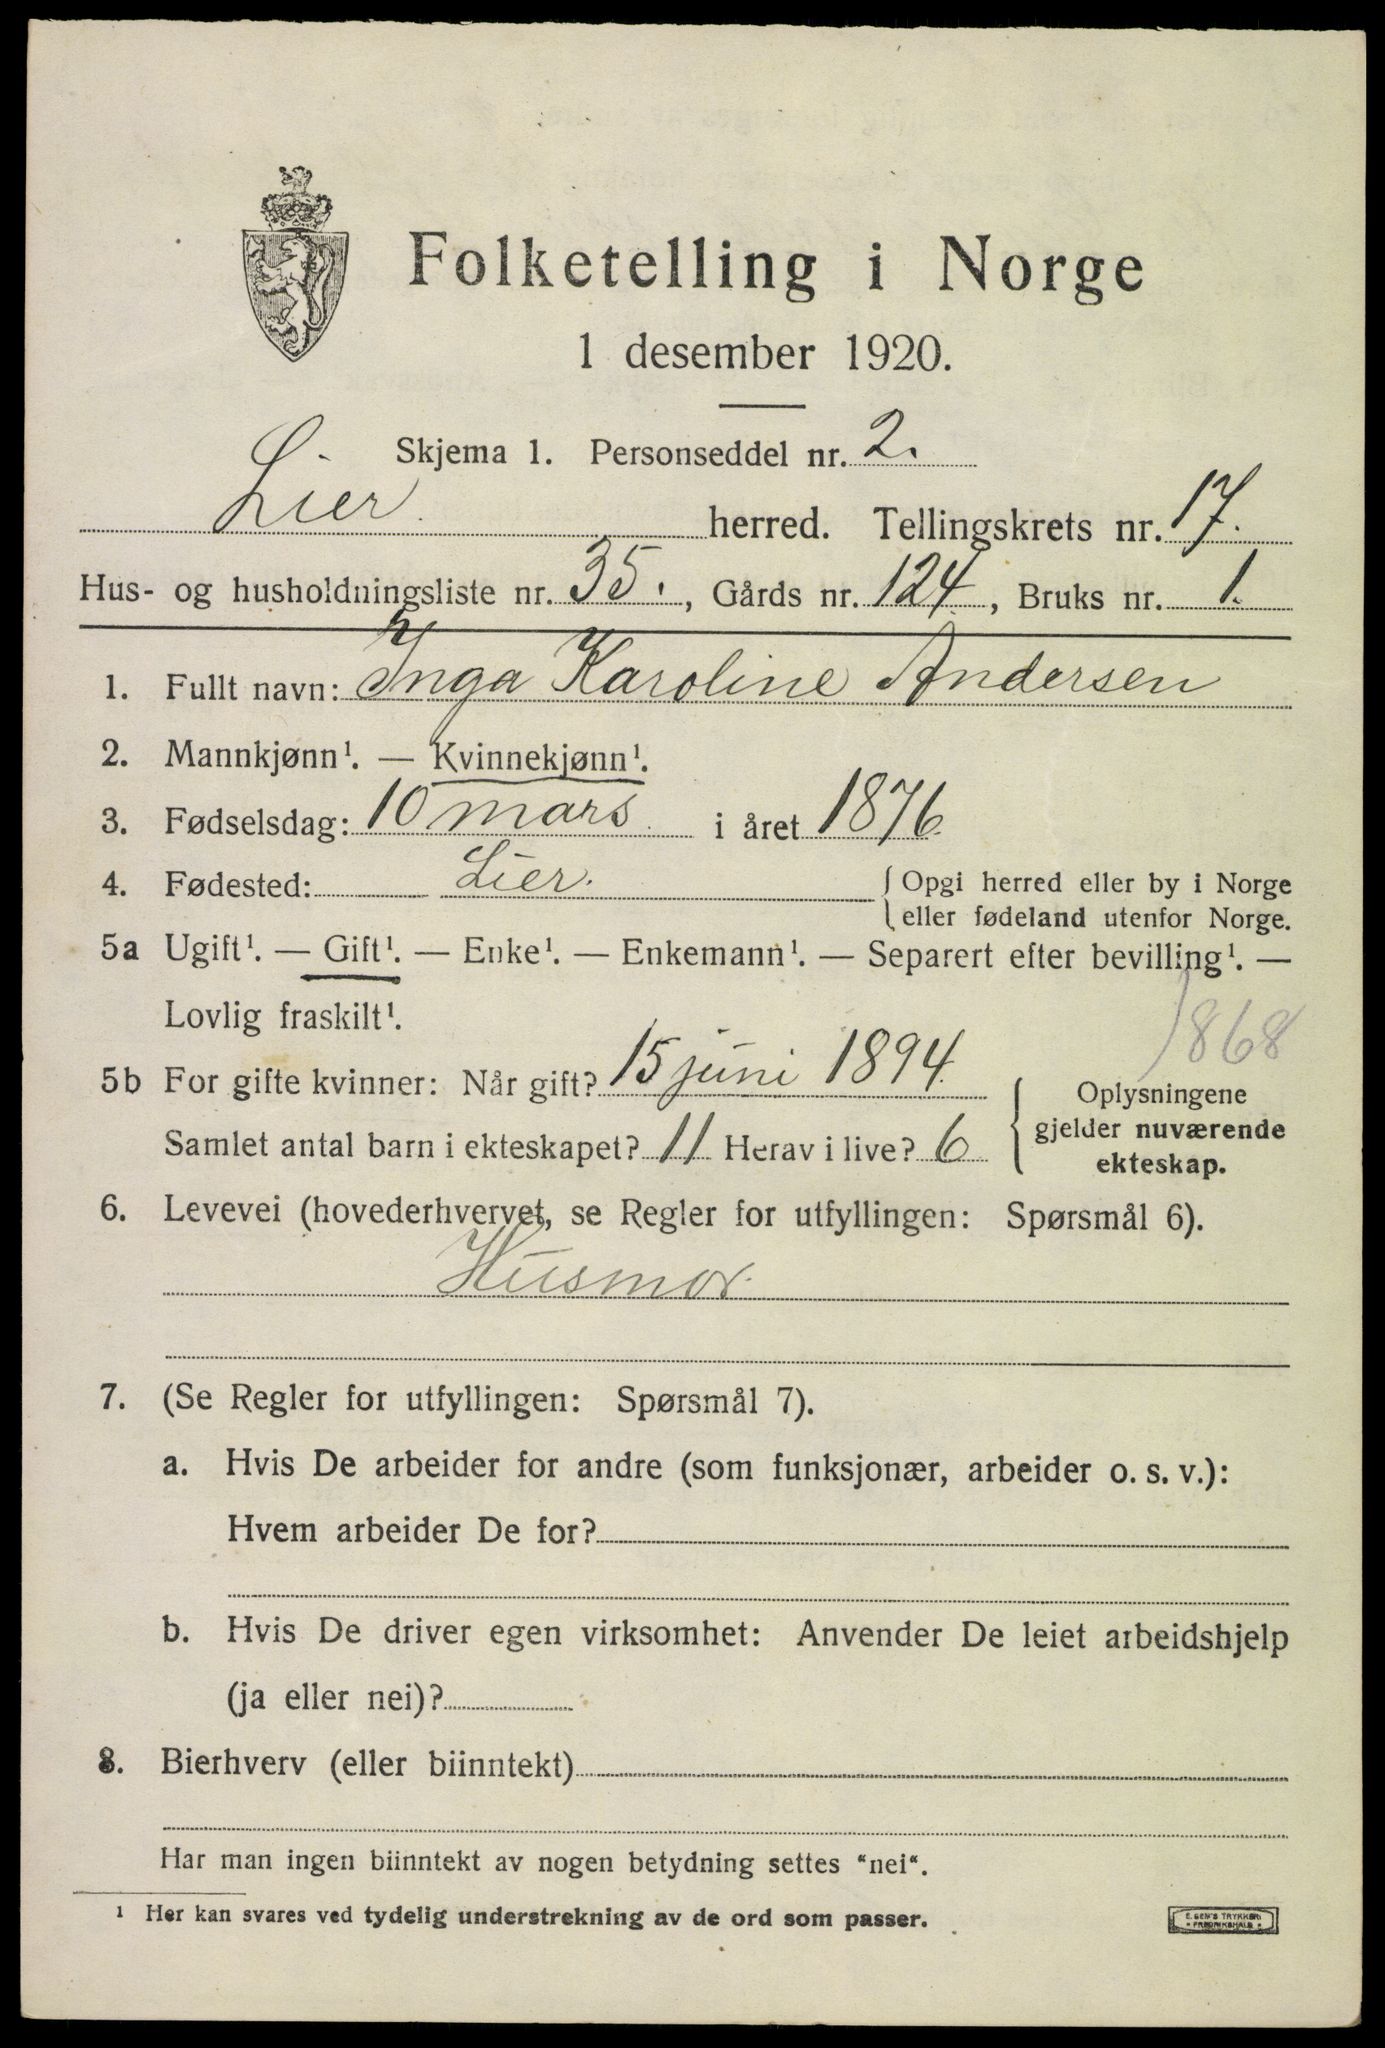 Folketelling i Norge
1 desember 1920.
Skjema 1. Personseddel nr. 2.
Lier. herred. Tellingskrets nr. 17.
Hus- og husholdningsliste nr. 35., Gårds nr. 124., Bruks nr. 1.
1. Fullt navn: Inga Karoline Andersen
2. Mannkjønn¹. — Kvinnekjønn¹.
3. Fødselsdag: 10 mars. i året 1876.
4. Fødested: Lier. { Opgi herred eller by i Norge
eller fødeland utenfor Norge.
5a Ugift¹. — Gift¹. — Enke¹. — Enkemann¹. — Separert efter bevilling¹. —
Lovlig fraskilt¹.
1868
5b For gifte kvinner: Når gift? 15 juni 1894.
Samlet antal barn i ekteskapet? 11 Herav i live? 6
{ Oplysningene
gjelder nuværende
ekteskap.
6. Levevei (hovederhvervet, se Regler for utfyllingen: Spørsmål 6).
Husmor.
7. (Se Regler for utfyllingen: Spørsmål 7).
a. Hvis De arbeider for andre (som funksjonær, arbeider o. s. v.):
Hvem arbeider De for?
b. Hvis De driver egen virksomhet: Anvender De leiet arbeidshjelp
(ja eller nei)?
8. Bierhverv (eller biinntekt)
Har man ingen biinntekt av nogen betydning settes "nei".
¹ Her kan svares ved tydelig understrekning av de ord som passer.
E. SEM'S TRYKKERI
FREDRIKSHALD